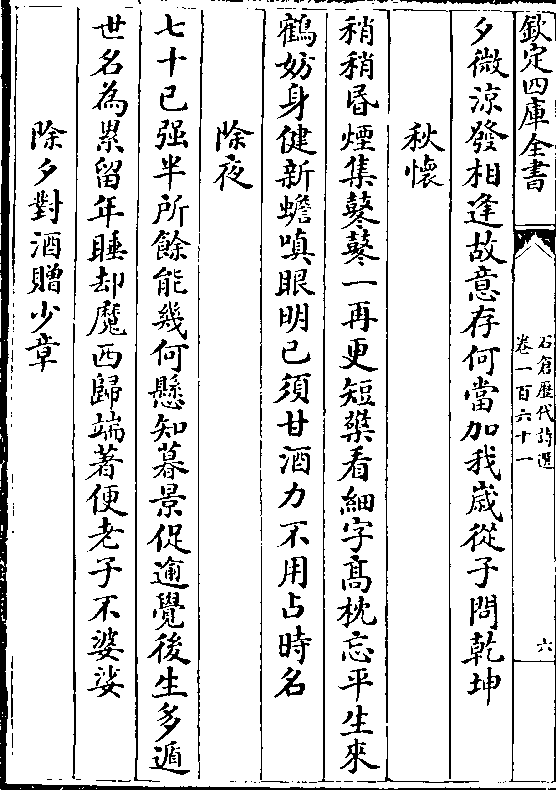 欽定四庫全書
石倉歷代詩選
卷一百六十一
六
夕微涼發相逢故意存何當加我歲從子問乾坤
秋懷
稍稍昏煙集鼕鼕一再更短檠看細字高枕忘平生來
鶴妨身健新蟾嗔眼明已須甘酒力不用占時名
除夜
七十已强半所餘能幾何懸知暮景促逾覺後生多遁
世名為累留年睡却魔西歸端著便老子不婆娑
除夕對酒贈少章